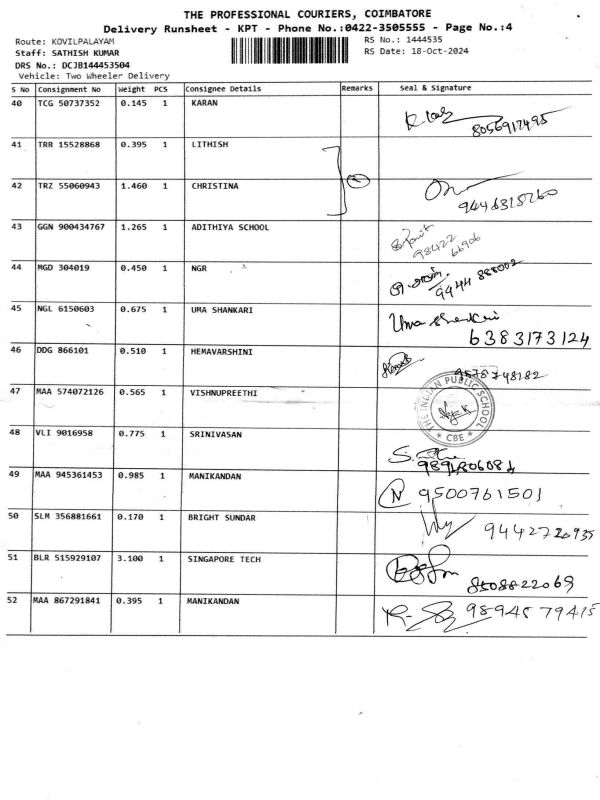 THE PROFESSIONAL COURIERS, COIMBATORE
Delivery Runsheet - KPT - Phone No.:0422-3505555 - Page No.:4
Route: KOVILPALAYAM
RS No.: 1444535
Staff: SATHISH KUMAR
RS Date: 18-Oct-2024
DRS No.: DCJB144453504
Vehicle: Two Wheeler Delivery
S No Consignment No Weight PCS Consignee Details Remarks Seal & Signature
40 TCG 50737352 0.145 1 KARAN
8056917495
41 TRR 15528868 0.395 1 LITHISH
42 TRZ 55060943 1.460 1 CHRISTINA
9446315260
43 GGN 900434767 1.265 1 ADITHIYA SCHOOL
98422
66906
44 MGD 304019 0.450 1 NGR
9444 888002
45 NGL 6150603 0.675 1 UMA SHANKARI
Uma Shankri
6383173124
46 DDG 866101 0.510 1 HEMAVARSHINI
9578748182
47 MAA 574072126 0.565 1 VISHNUPREETHI
THE INDIAN PUBLIC SCHOOL
CBE
48 VLI 9016958 0.775 1 SRINIVASAN
49 MAA 945361453 0.985 1 MANIKANDAN
9500761501
50 SLM 356881661 0.170 1 BRIGHT SUNDAR
9442720935
51 BLR 515929107 3.100 1 SINGAPORE TECH
8508822069
52 MAA 867291841 0.395 1 MANIKANDAN
9894579415